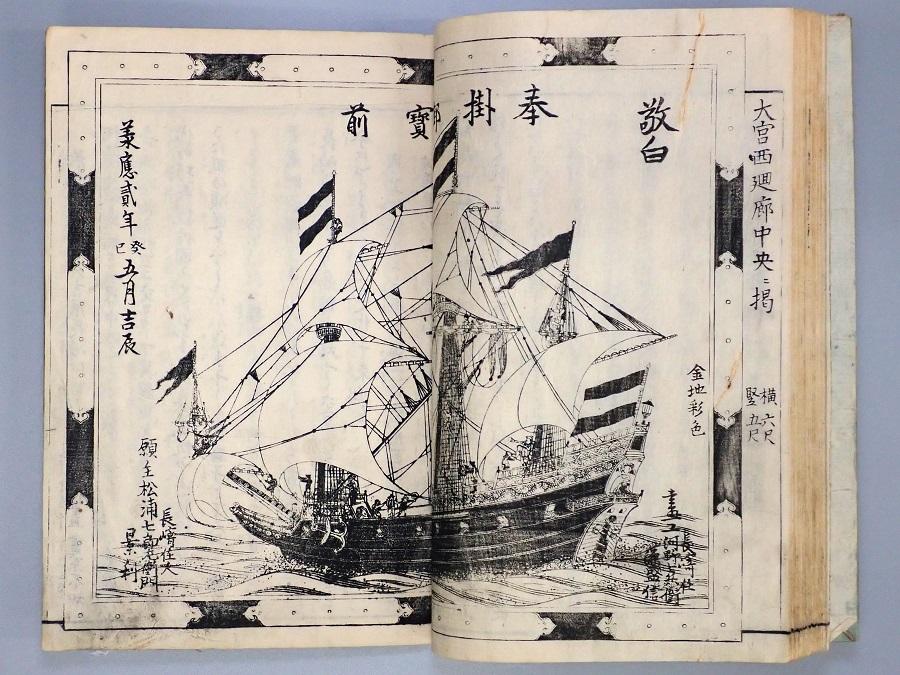 大宮西廻廊中央ニ掲
横六尺
竪五尺
敬白
金地彩色
奉掛御寶前
長﨑住
畫工河野兵衛
盛信
承應貳年癸巳五月吉辰
長﨑住人
願主松浦七郎左衛門
景利